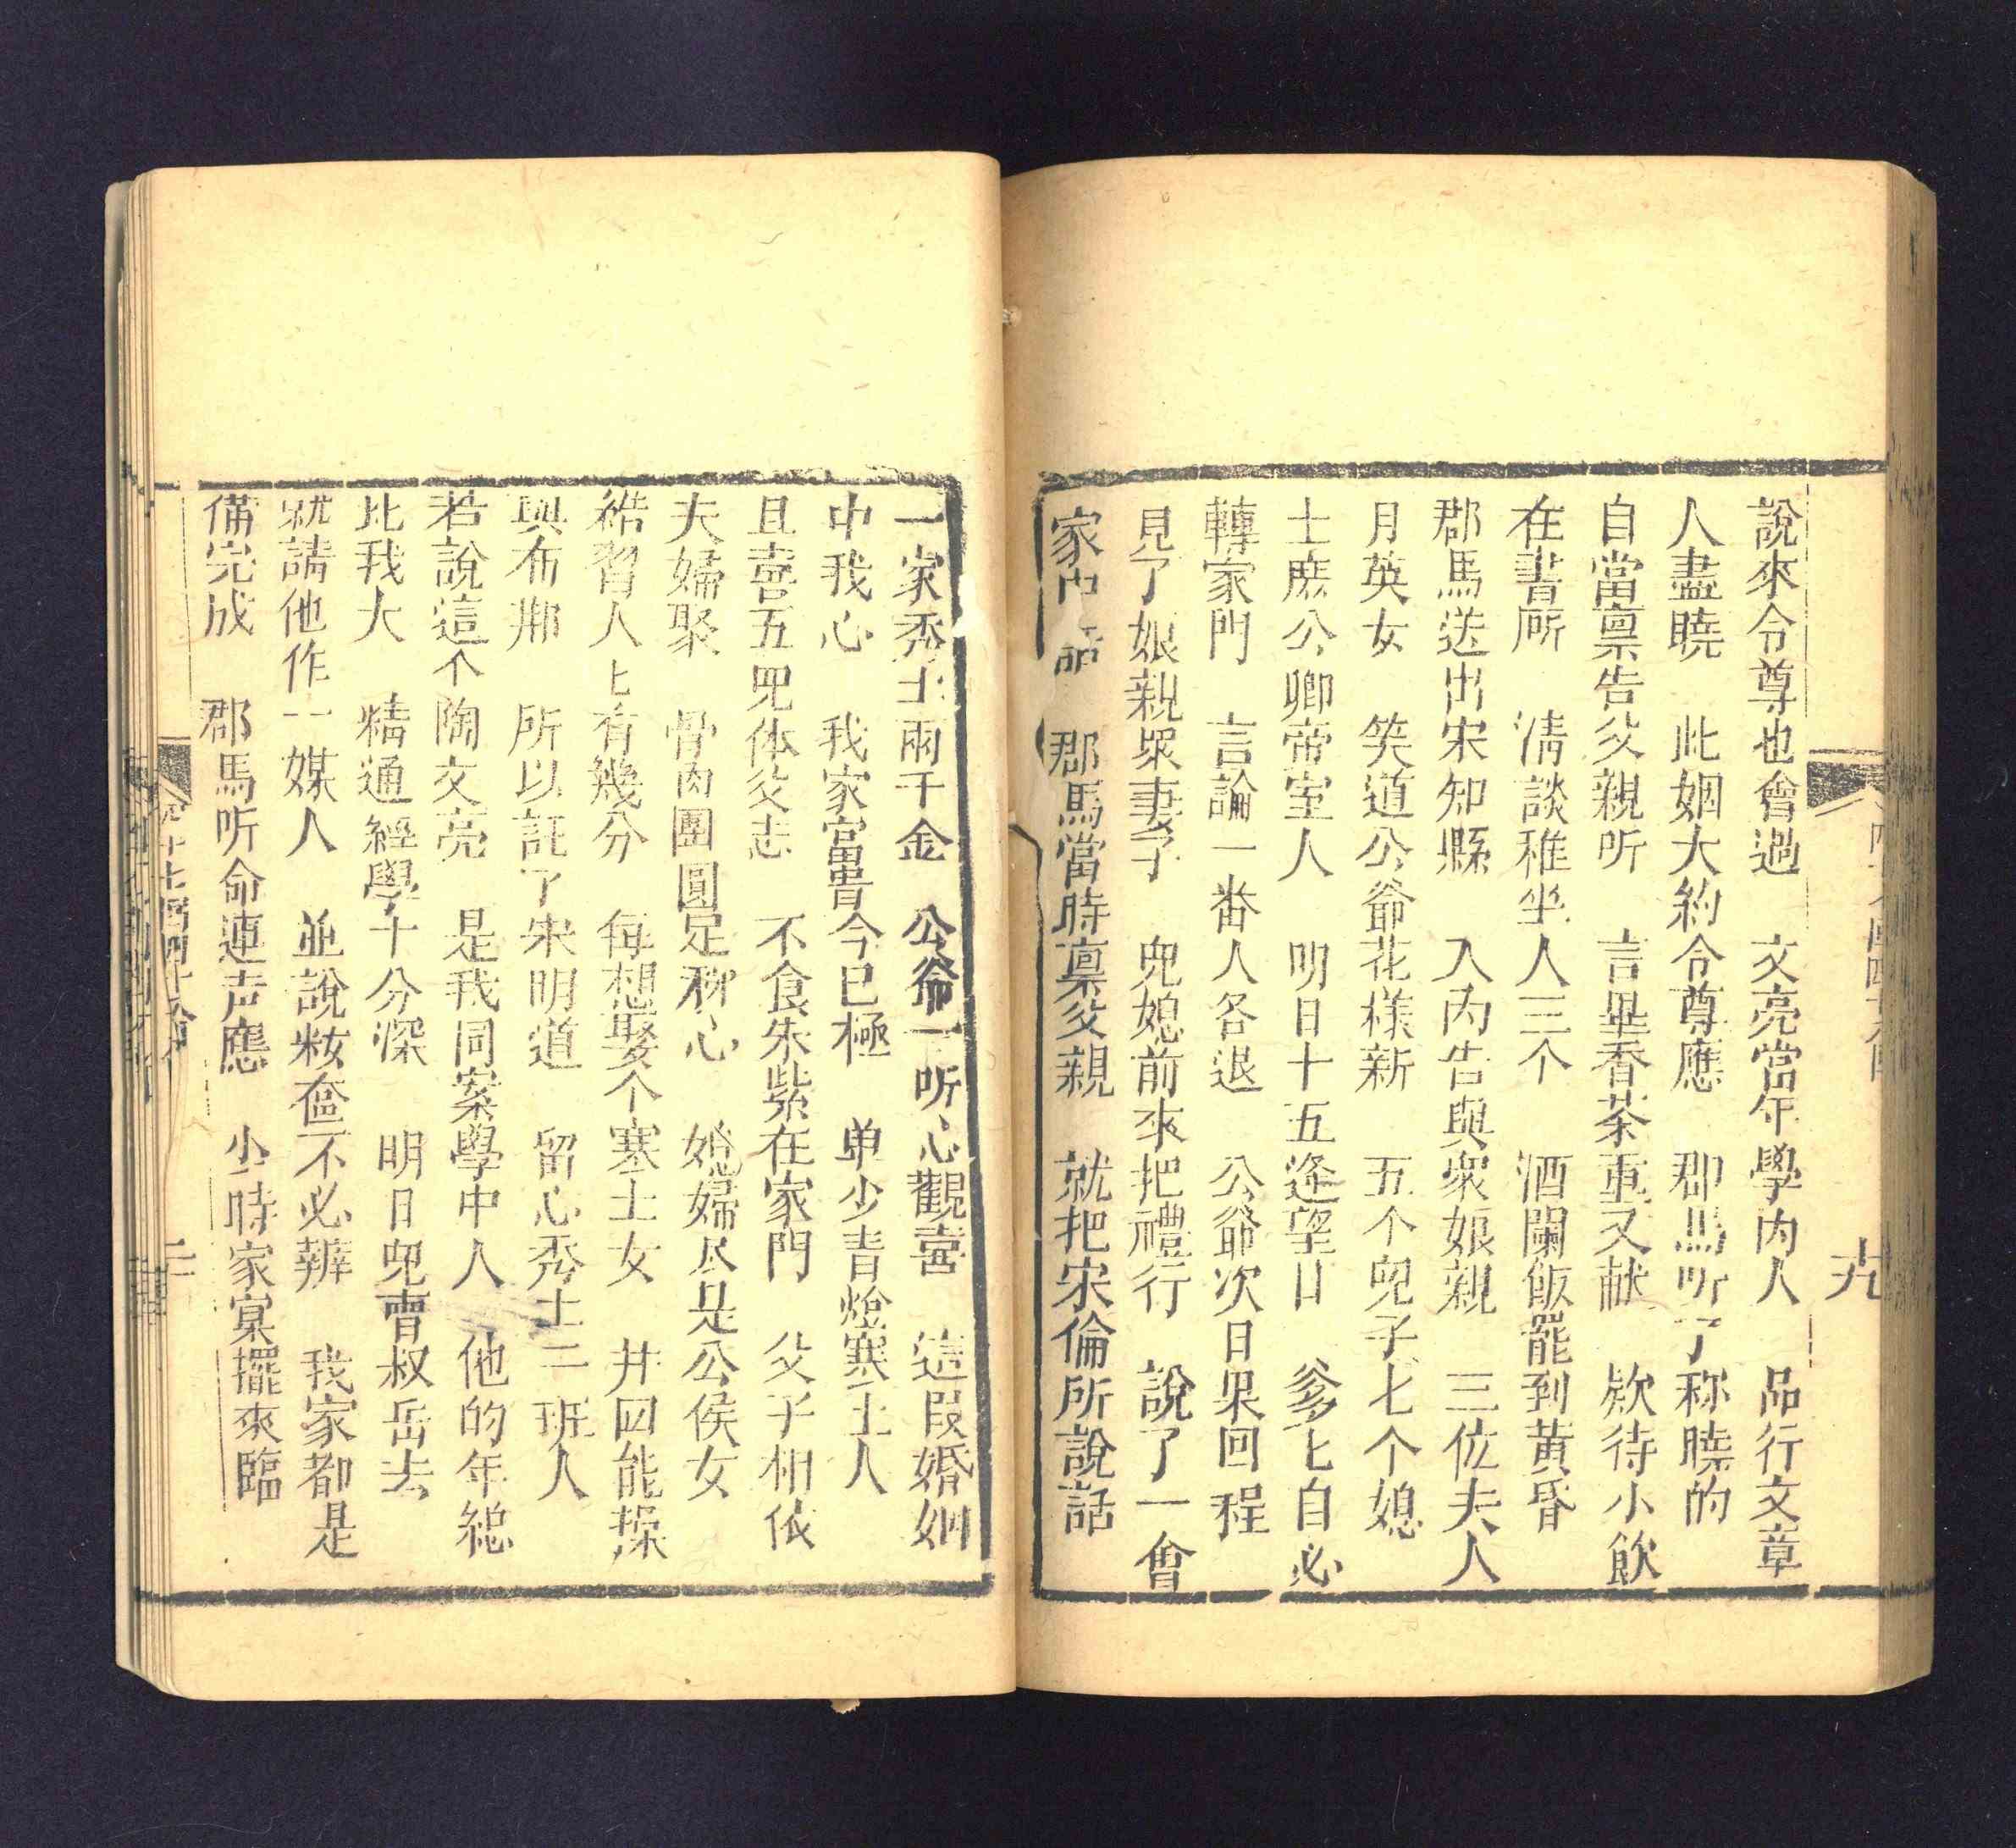 說來令尊也會過　文亮當年學內人　品行文章
人盡曉　此姻大約令尊應　郡馬听了称曉的
自當禀告父親听　言畢香茶重又献　欵待小飲
在書厛　淸談稚坐人三个　酒闌飯罷到黄昏
郡馬送出宋知縣　入內告與衆娘親　三位夫人
月英女　笑道公爺花樣新　五个兒子七个媳
士庶公卿帝室人　明日十五逢望日　爹匕自必
轉家門　言論一畨人各退　公爺次日果回程
見了娘親衆妻子　兒媳前來把禮行　說了一會
家內話　郡馬當時禀父親　就把宋倫所說話
九
一家秀士兩千金　公爺一听心觀喜　這叚婚姻
中我心　我家富貴今已極　单少青燈寒士人
且喜五兒体父志　不食朱紫在家門　父子相依
夫婦聚　骨肉團圓足称心　媳婦尽是公侯女
袴習人上有幾分　每想娶个寒士女　井臼能操
與布　所以託了宋明道　留心秀士二班人
若說這个陶文亮　是我同案學中人　他的年縂
比我大　精通經學十分深　明日兒曺叔岳去
就請他作一媒人　並說粧奩不必辦　我家都是
備完成　郡馬听命連声應　少時家宴擺來臨